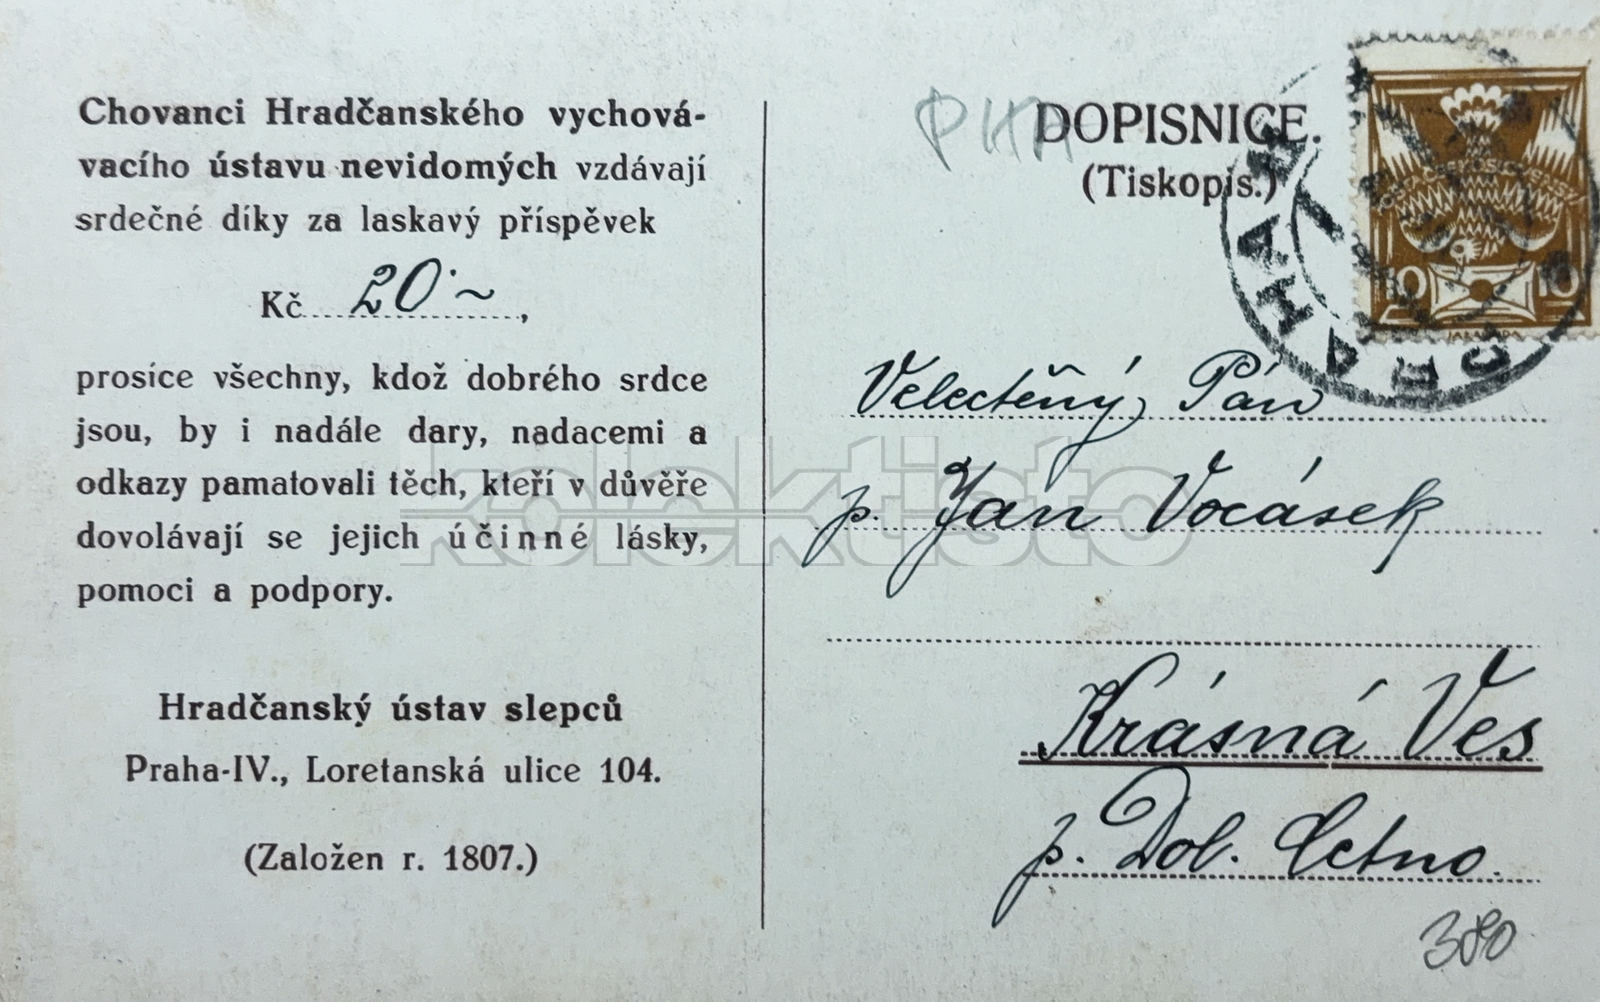 Chovanci Hradčanského vychová-
vacího ústavu nevidomých vzdávají
srdečné díky za laskavý příspěvek
Kč 20·~,
prosíce všechny, kdož dobrého srdce
jsou, by i nadále dary, nadacemi a
odkazy pamatovali těch, kteří v důvěře
dovolávají se jejich účinné lásky,
pomoci a podpory.
Hradčanský ústav slepců
Praha-IV., Loretanská ulice 104.
(Založen r. 1807.)
PHA
DOPISNICE.
(Tiskopis.)
10 10
PRAHA
Velectěný Pán
p. Jan Vocásek
Krásná Ves
p. Dol. Cetno.
380
kolektisto